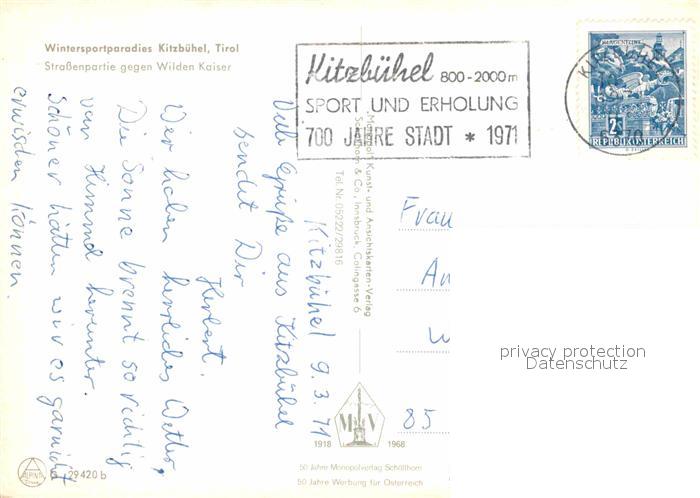 Wintersportparadies Kitzbühel, Tirol
Straßenpartie gegen Wilden Kaiser
Kitzbühel 800-2000 m
SPORT UND ERHOLUNG
700 JAHRE STADT * 1971
2 S
REPUBLIK ÖSTERREICH
Kitzbühel 9.3.71
Viele Grüße aus Kitzbühel
sendet Dir
Herbert.
Wir haben herrliches Wetter,
Die Sonne brennt so richtig
vom Himmel herunter.
Schöner hätten wir es garnicht
erwischen können.
Monopol Kunst- und Ansichtskarten-Verlag
Schöllhorn & Co., Innsbruck, Colingasse 6
Tel. Nr. 05222/29816
Frau
An
W
85
privacy protection
Datenschutz
M V
1918 1968
50 Jahre Monopolverlag Schöllhorn
50 Jahre Werbung für Österreich
ALPINE
29420 b